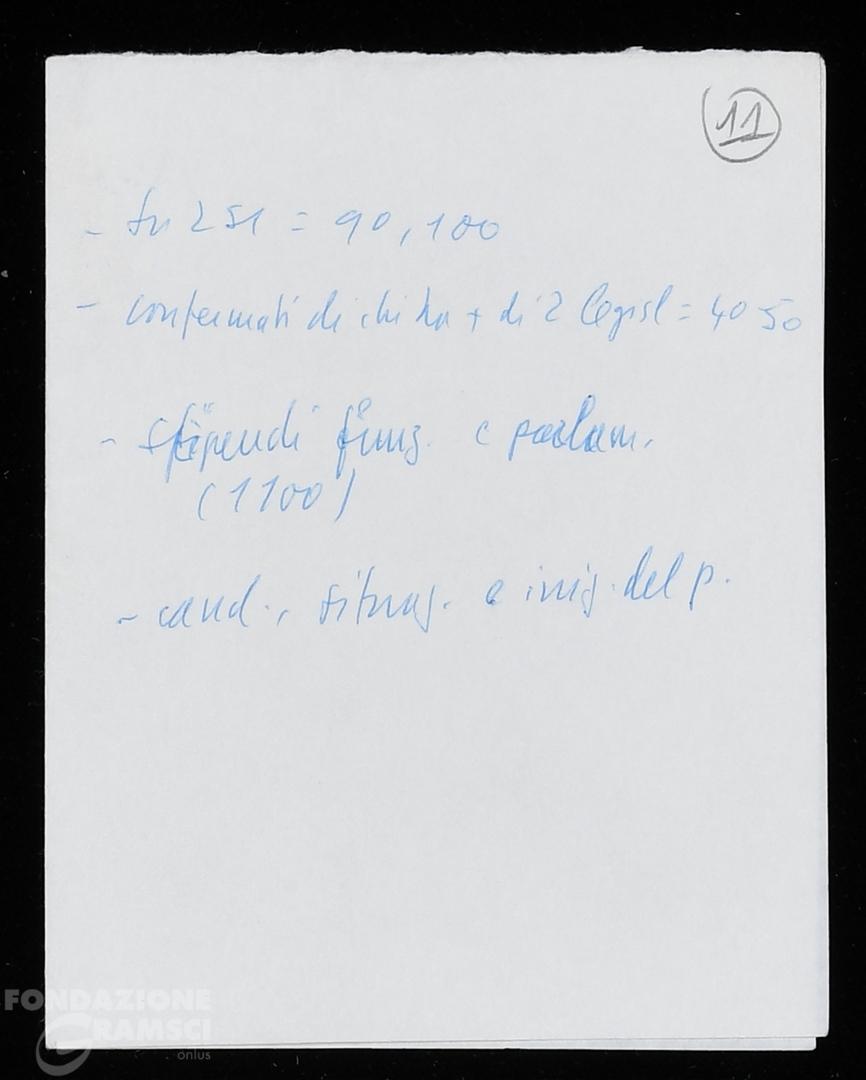 11
- su 251 = 90, 100
- confermati di chi ha + di 2 legisl = 40 50
- stipendi funz. e parlam.
(1100)
- cand., situaz. e iniz. del p.
FONDAZIONE
GRAMSCI
onlus